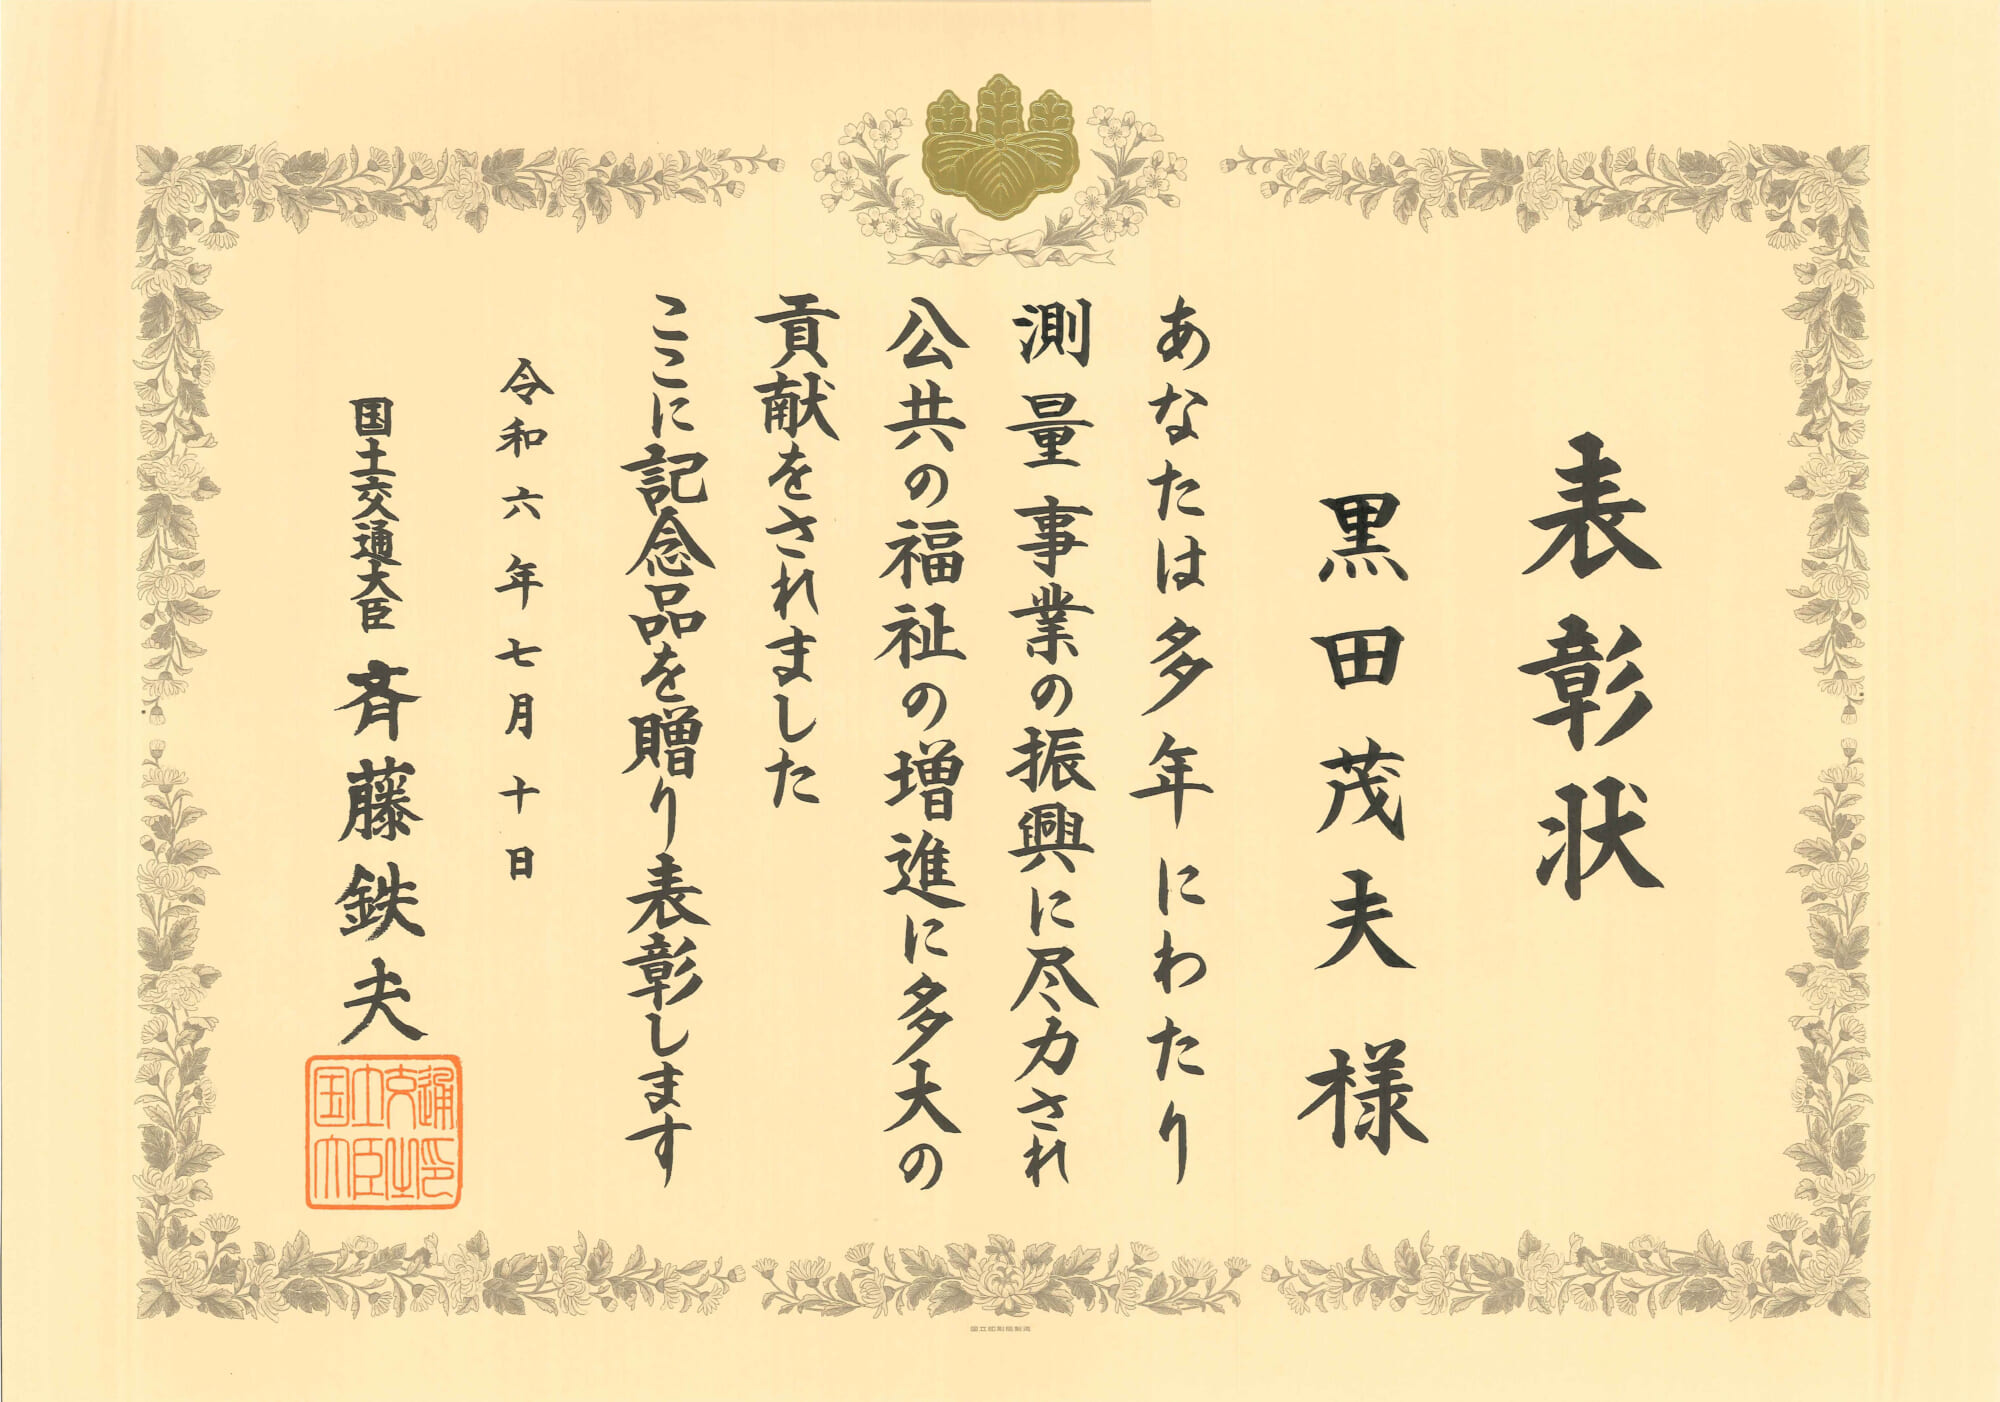 表彰状
黒田茂夫様
あなたは多年にわたり
測量事業の振興に尽力され
公共の福祉の増進に多大の
貢献をされました
ここに記念品を贈り表彰します
令和六年七月十日
国土交通大臣 斉藤鉄夫
国土交通
大臣之印
国立印刷局製造